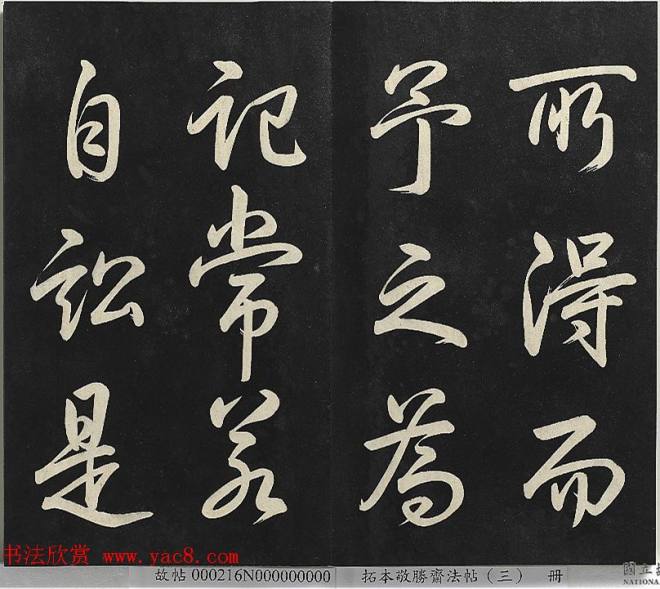 所得而
予之為
記常若
自訟是
书法欣赏 www.yac8.com
故帖 000216N000000000 拓本敬勝齋法帖（三） 冊
國立
NATIONAL